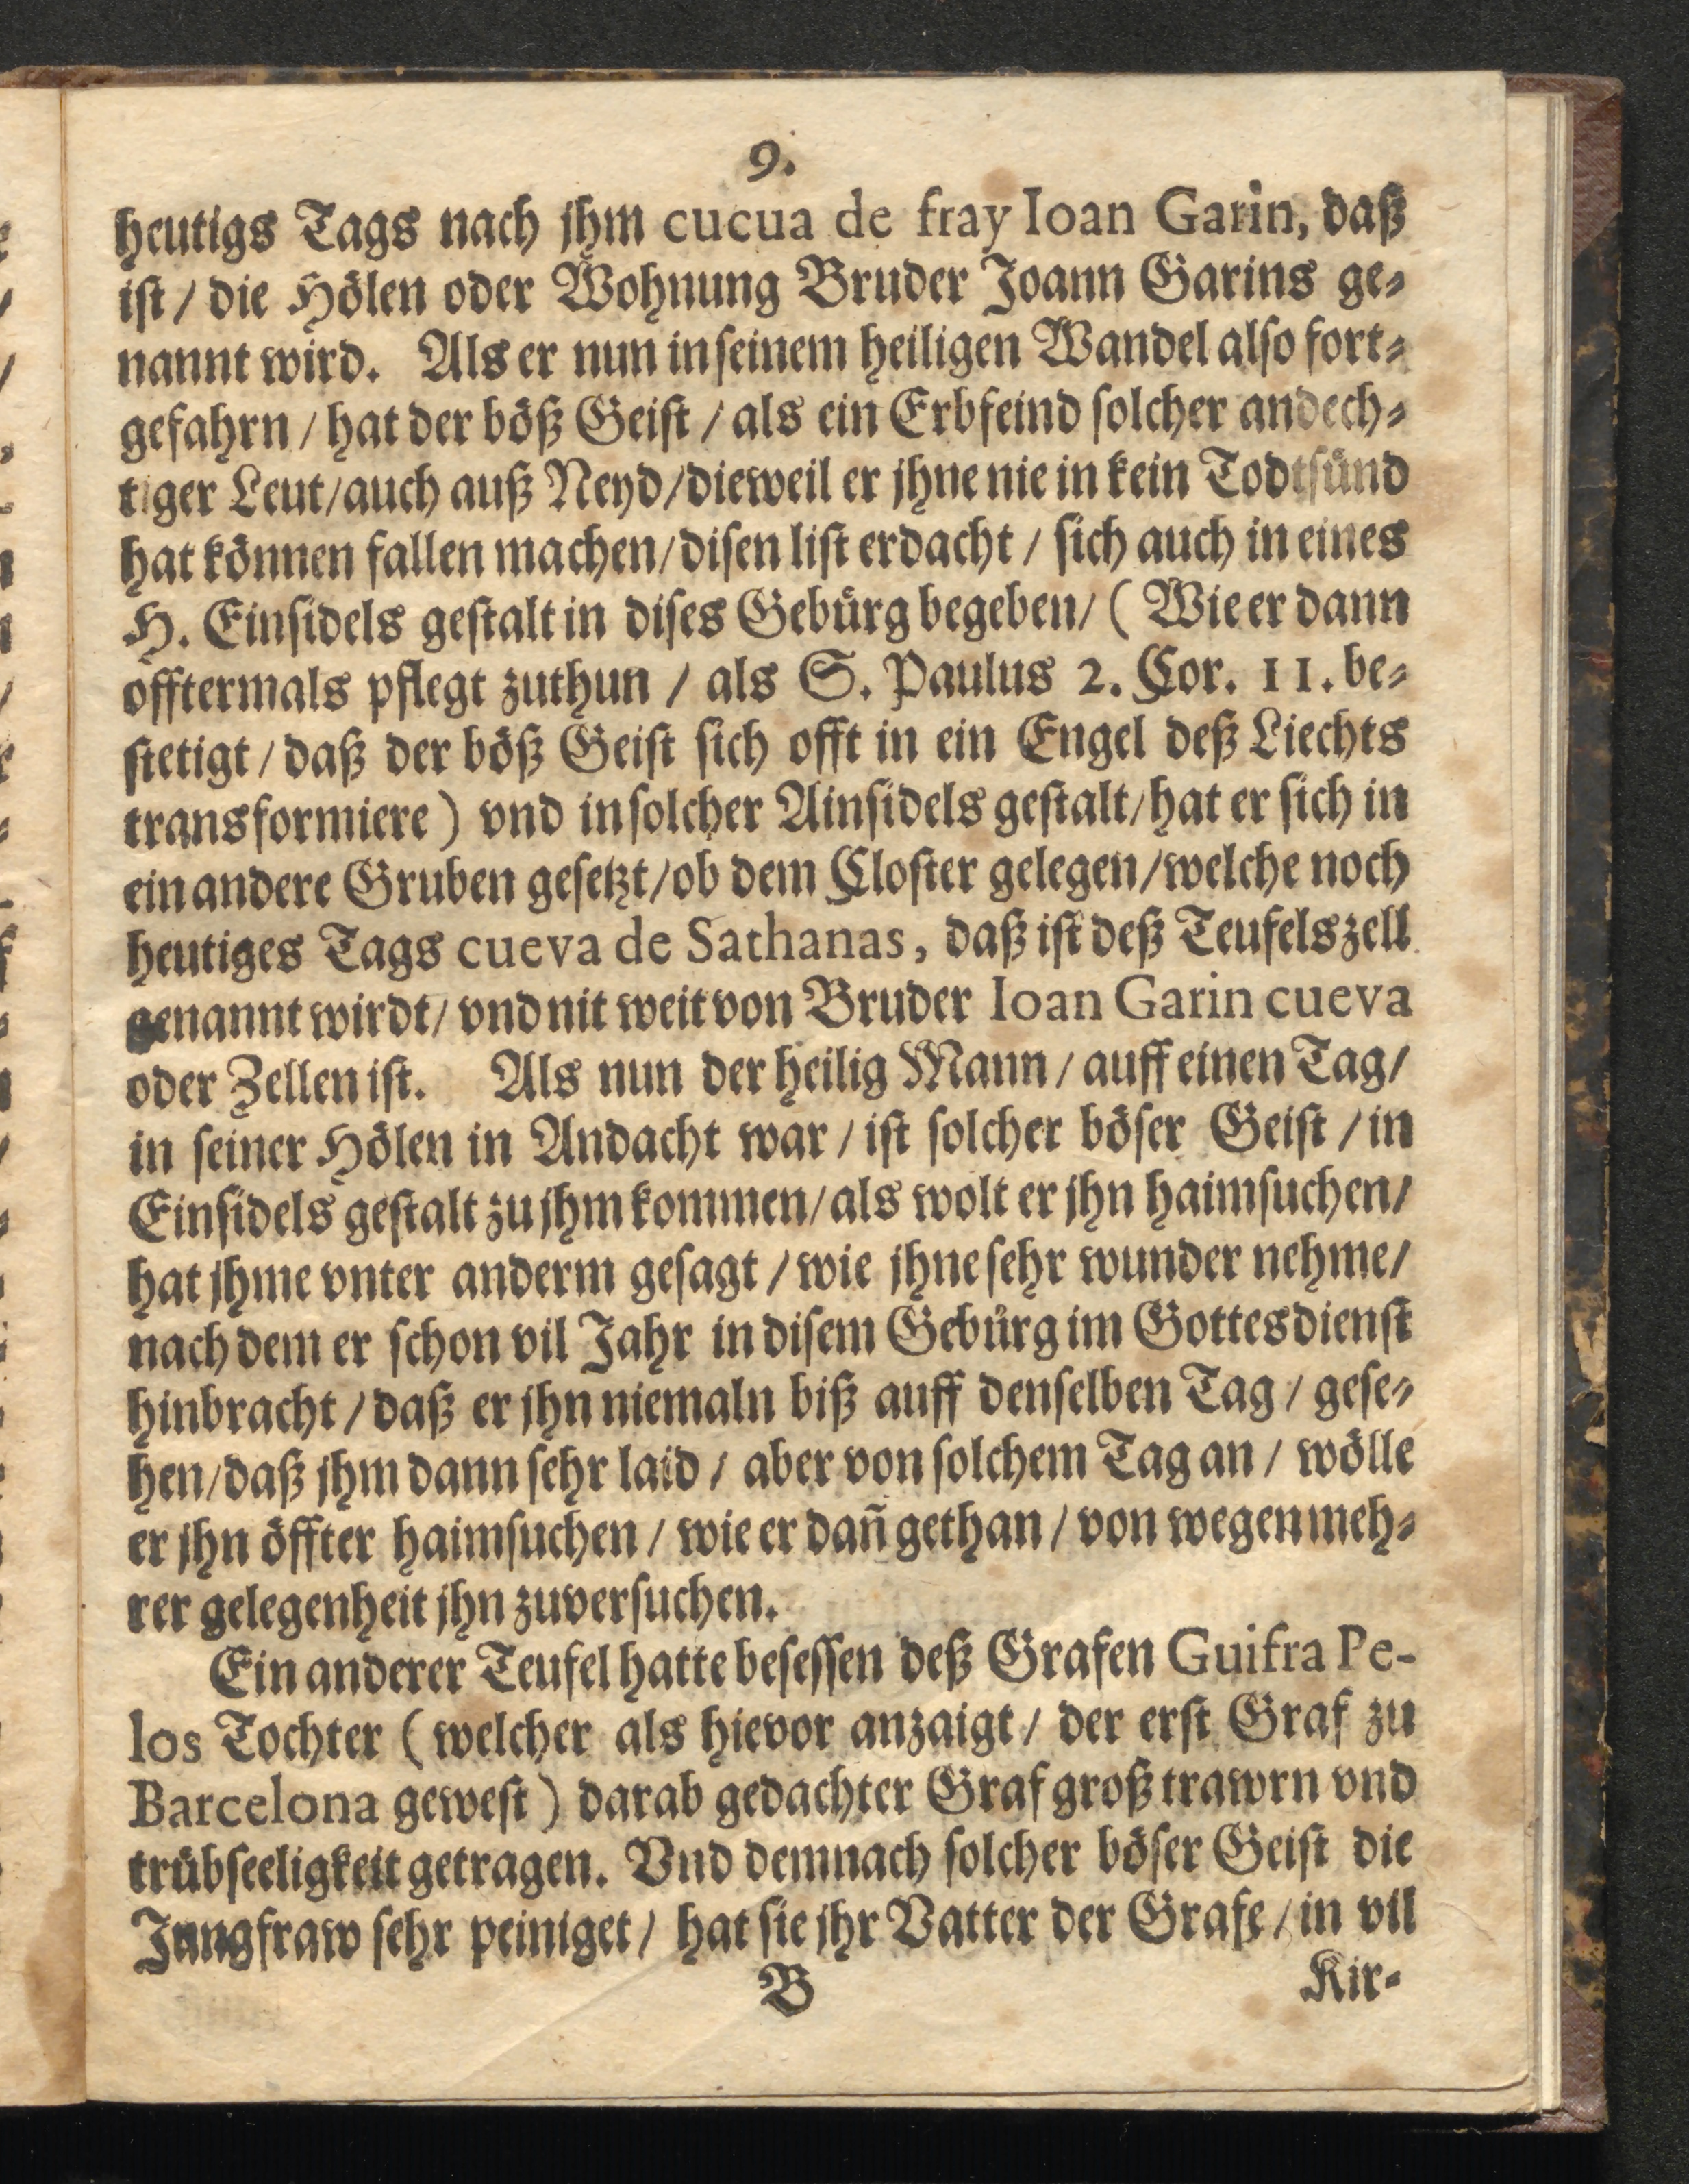 9.
heutigs Tags nach jhm cucua de fray Ioan Garin, daß
ist / die Hölen oder Wohnung Bruder Joann Garins ge-
nannt wird. Als er nun in seinem heiligen Wandel also fort-
gefahrn / hat der böß Geist / als ein Erbfeind solcher andech-
tiger Leut / auch auß Neyd / dieweil er jhne nie in kein Todtsünd
hat können fallen machen / disen list erdacht / sich auch in eines
H. Einsidels gestalt in dises Gebürg begeben / ( Wie er dann
offtermals pflegt zuthun / als S. Paulus 2. Cor. 11. be-
stetigt / daß der böß Geist sich offt in ein Engel deß Liechts
transformiere ) vnd in solcher Ainsidels gestalt / hat er sich in
ein andere Gruben gesetzt / ob dem Closter gelegen / welche noch
heutiges Tags cueva de Sathanas, daß ist deß Teufels zell
genannt wirdt / vnd nit weit von Bruder Ioan Garin cueva
oder Zellen ist. Als nun der heilig Mann / auff einen Tag /
in seiner Hölen in Andacht war / ist solcher böser Geist / in
Einsidels gestalt zu jhm kommen / als wolt er jhn haimsuchen /
hat jhme vnter anderm gesagt / wie jhne sehr wunder nehme /
nach dem er schon vil Jahr in disem Gebürg im Gottesdienst
hinbracht / daß er jhn niemaln biß auff denselben Tag / gese-
hen / daß jhm dann sehr laid / aber von solchem Tag an / wölle
er jhn öffter haimsuchen / wie er dañ gethan / von wegen meh-
rer gelegenheit jhn zuversuchen.
Ein anderer Teufel hatte besessen deß Grafen Guifra Pe-
los Tochter ( welcher als hievor anzaigt / der erst Graf zu
Barcelona gewest ) darab gedachter Graf groß trawrn vnd
trübseeligkeit getragen. Vnd demnach solcher böser Geist die
Jungfraw sehr peiniget / hat sie jhr Vatter der Grafe / in vil
B Kir-